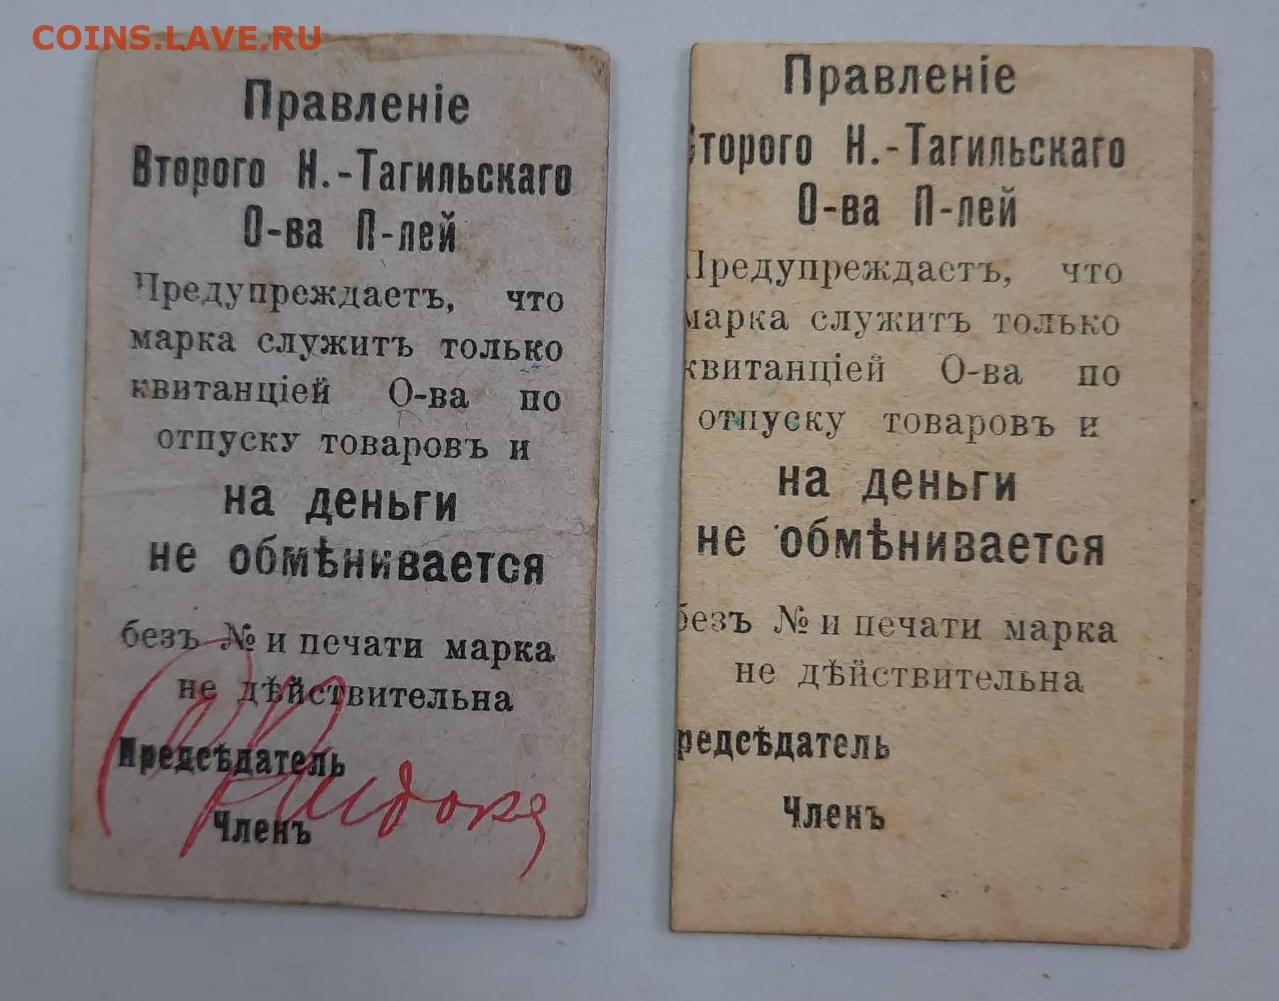 COINS.LAVE.RU
Правленіе
Второго Н.-Тагильскаго
О-ва П-лей
Предупреждаетъ, что
марка служитъ только
квитанціей О-ва по
отпуску товаровъ и
на деньги
не обмѣнивается
безъ № и печати марка
не дѣйствительна
Предсѣдатель
Членъ
Правленіе
торого Н.-Тагильскаго
О-ва П-лей
Предупреждаетъ, что
марка служитъ только
квитанціей О-ва по
отпуску товаровъ и
на деньги
не обмѣнивается
безъ № и печати марка
не дѣйствительна
редсѣдатель
Членъ